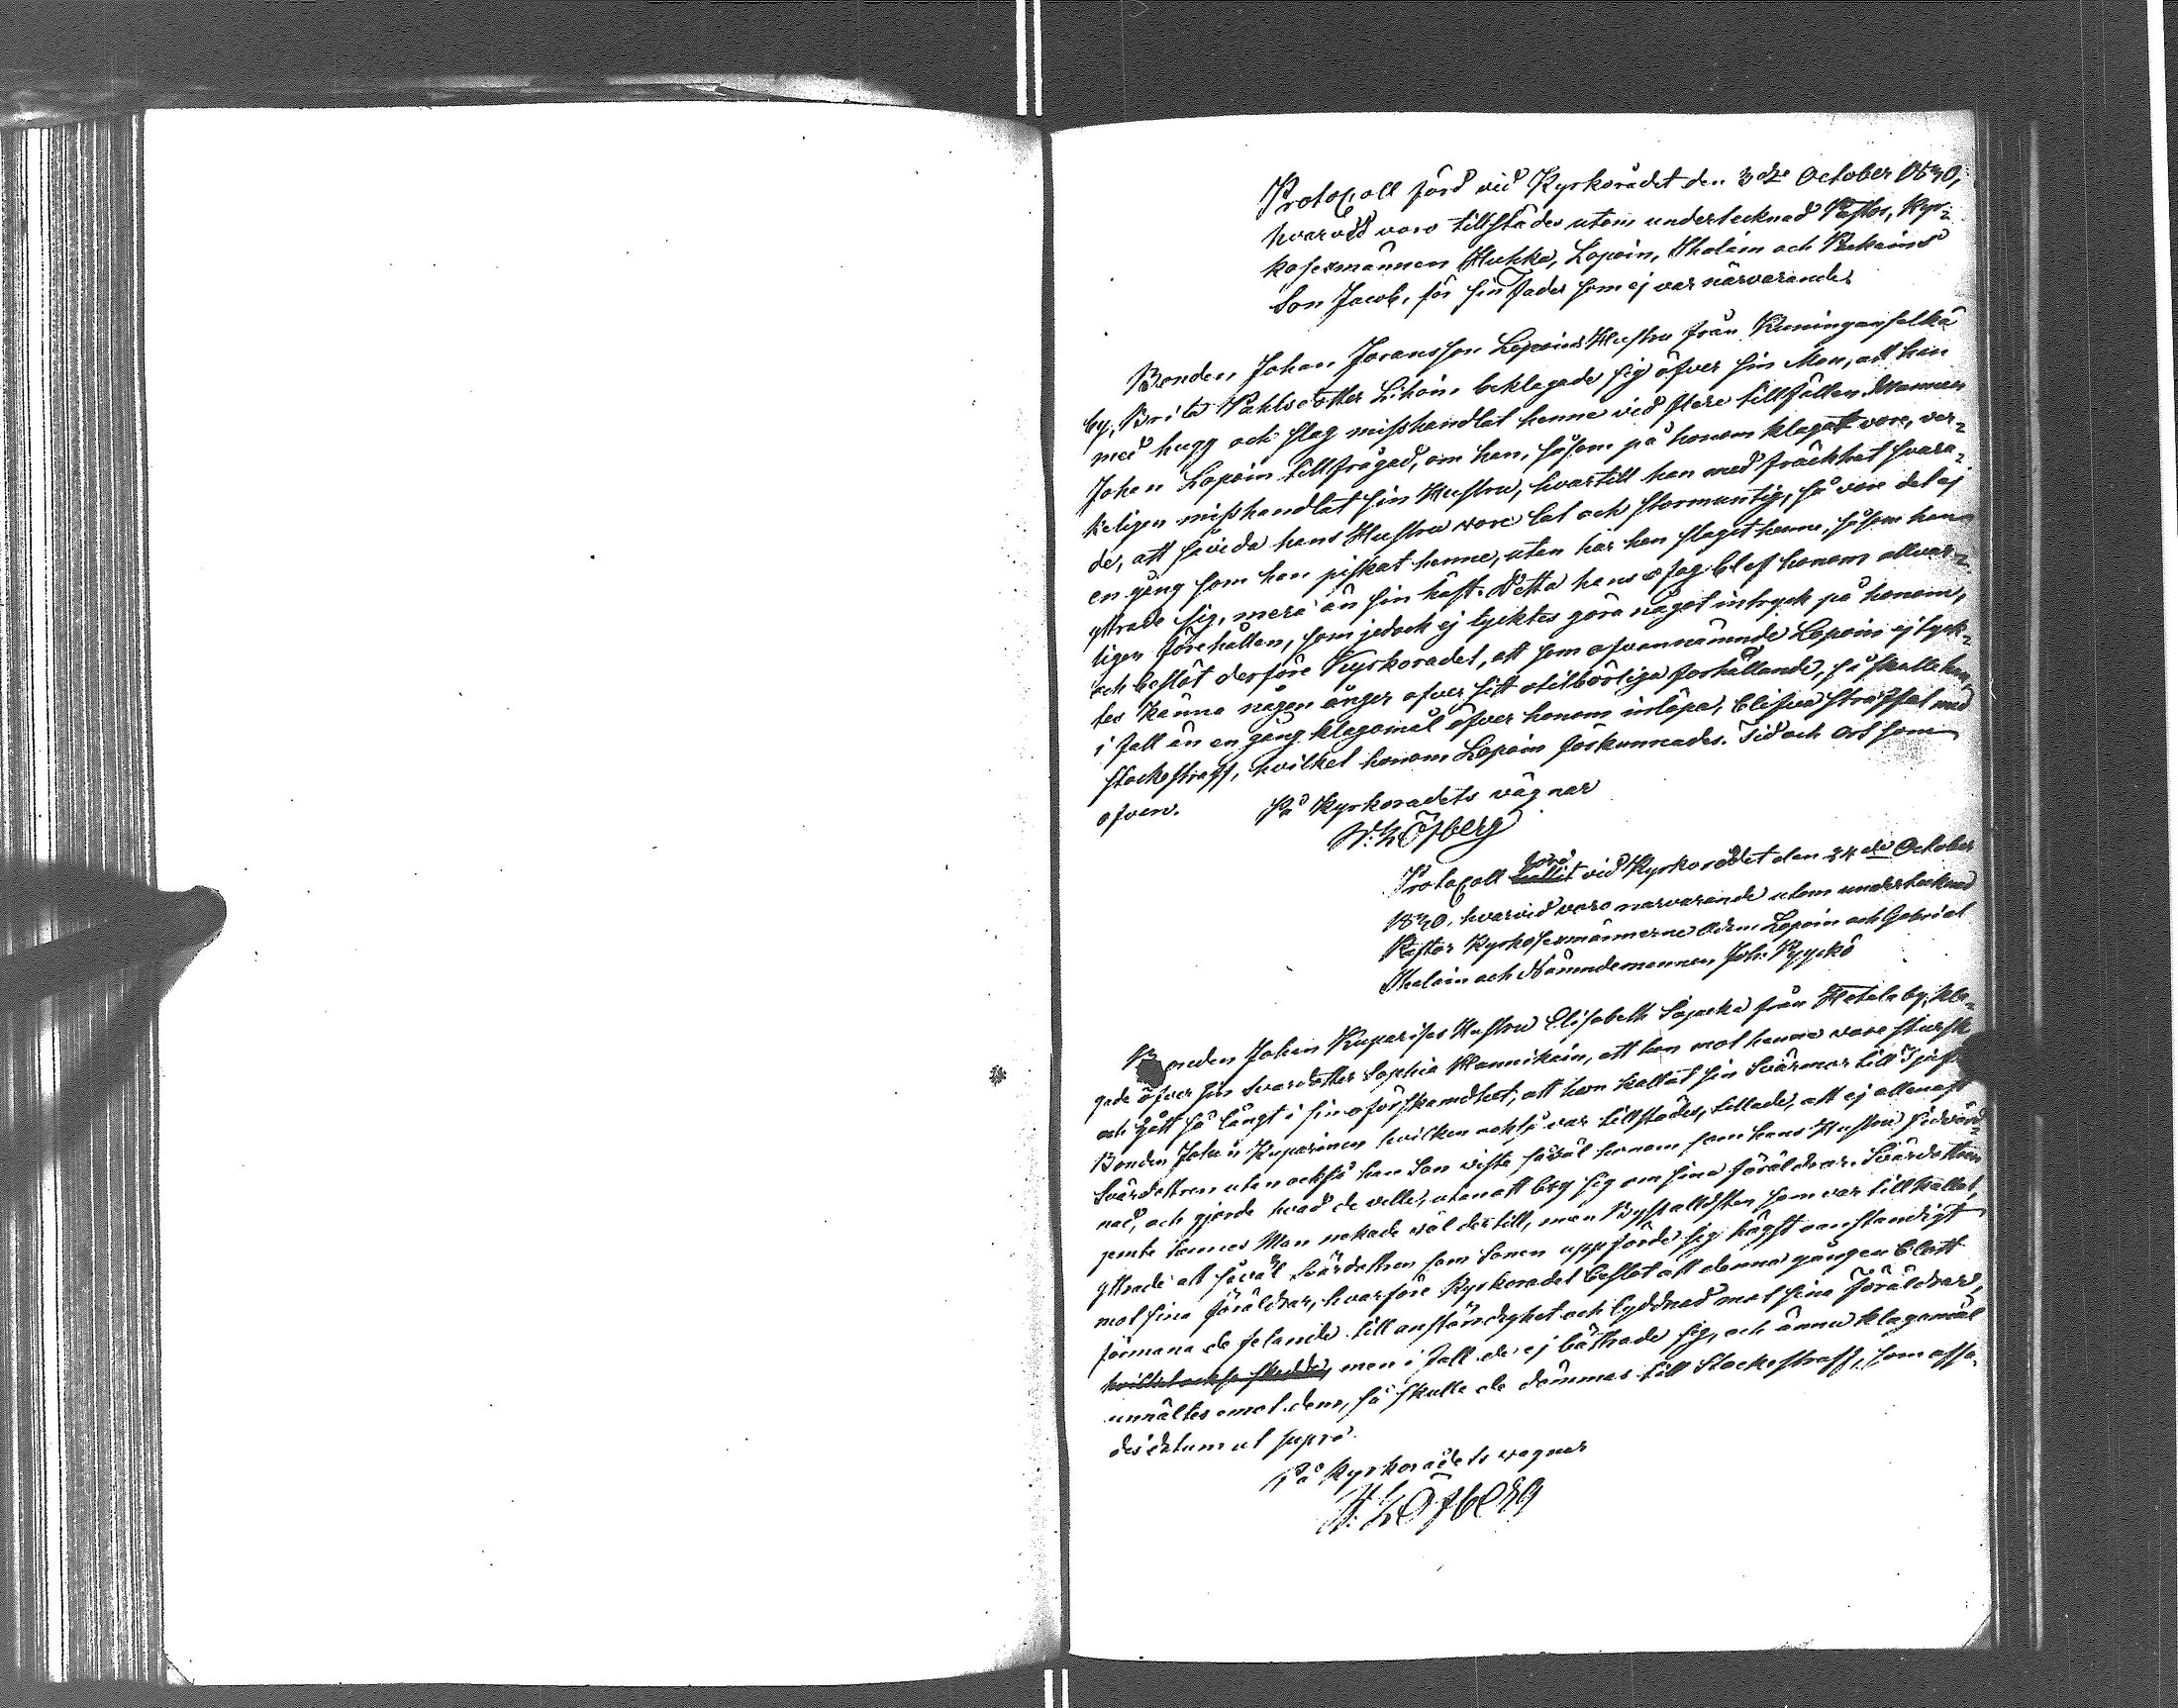 Protocoll förd vid Kyrkorådet den 3dje October 1830,
hvarvid voro tillstädes utom undertecknad Pastor, Kyr-
kosexmännen Hukka, Lopoin, Ihalain och Pukains
Son Jacob, för sin Fader som ej var närvarande.
Bonden Johan Joransson Lopoins Hustru från Kuninganselkä
by, Brita Pahlsdotter Likoin, beklagade sig öfver sin Man, att han
med hugg och slag misshandlat henne vid flere tillfällen. Mannen
Johan Lopoin tillfrågad, om han, såsom på honom klagat vore, ver-
keligen misshandlat sin Hustru, hvartill han med fräckhet svara-
de, att såvida hans Hustru vore lat och stormuntig, så vore det ej
en gång som han piskat henne, utan har han slagit henne, såsom han
yttrade sig, mera än sin häst. Detta hans ofog blef honom allvar-
ligen förehållen, som jedock ej tycktes göra något intryck på honom,
och beslöt derföre Kyrkoradet, att som ofvannämnde Lopoin ej tyck-
tes känna någon ånger öfver sitt otilbörliga förhållande, så skulle han,
i fall än en gång klagomål öfver honom inlöpa, blifva straffat med
stockstraff, hvilket honom Lopoin förkunnades. Tid och ort som
ofvan. På Kyrkoradets vägnar
Löfberg
Protocoll hållit förd vid Kyrkorådet den 24de October
1830. hvarvid voro närvarande utom undertecknad
Pastor Kyrkosexmännerne Adam Lopoin och Gabriel
Ihalain och Nämndemannen Joh. Pyykö
Bonden Johan Kuparises Hustru Elisabeth från Hatala by, kla-
gade öfver sin Svärdotter Sophia Mannikain, att hon mot henne vore stursk
och gått så långt i sin oförskamdhet, att hon kallat sin Svärmor till
Bonden Johan Kuparinen hvilken också var tillstädes, tillade, att ej allenast
Svärdottren utan också han Son viste såväl honom som hans Hustru
nad, och gjorde hvad de ville, utan att bry sig om sina föräldrar. Svärdottren
jemte hennes Man nekade väl dertill, men Byståldsten som var tillkallat,
yttrade att såväl Svärdottren som Sonen uppförde sig högst oanständigt
mot sina föräldrar, hvarföre Kyrkoradet beslöt att denna gången blott
förmana de felande till anständighet och lyddnad mot sina Föräldrar,
hvilket också skedde, men i fall de ej bättrade sig, och ännu klagomål
anmältes emot dem, så skulle de dömmas till Stockstraff, som
des datum ut supra.
På Kyrkorådets vägnar
Löfberg